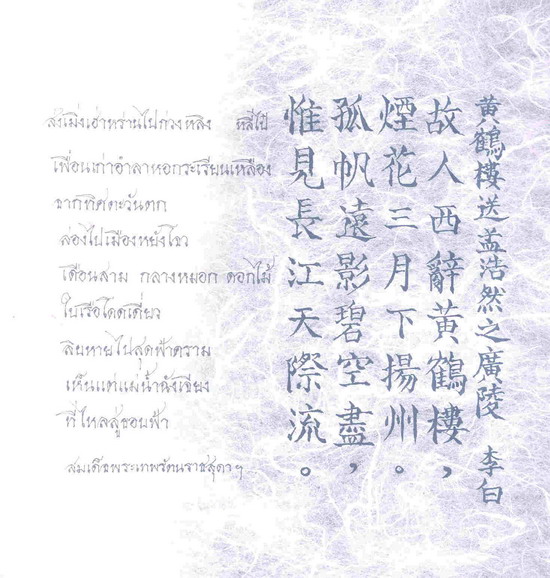 黄鶴樓送孟浩然之廣陵 李白
故人西辭黄鶴樓,
煙花三月下揚州。
孤帆遠影碧空盡,
惟見長江天際流。
ส่งเมิ่งเฮ่าหรานไปกวงหลิง หลี่ไป๋
เพื่อนเก่าอำลาหอกระเรียนเหลือง
จากทิศตะวันตก
ล่องไปเมืองหยังโจว
เดือนสาม กลางหมอก ดอกไม้
ใบเรือโดดเดี่ยว
ลับหายไปสุดฟ้าคราม
เห็นแต่แม่น้ำฉังเจียง
ที่ไหลสู่ขอบฟ้า
สมเด็จพระเทพรัตนราชสุดาฯ